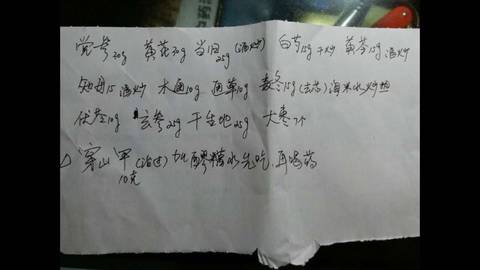 党参20g 黄芪20g 当归25g(酒炒) 白芍15g干炒 黄芩15g酒炒
知母15酒炒 木通10g 通草10g 麦冬15g(去芯)海米水炒
伏苓10g 玄参25g 干生地25g 大枣7个
穿山甲(泡过)加醪糟水先吃,再喝药
10克